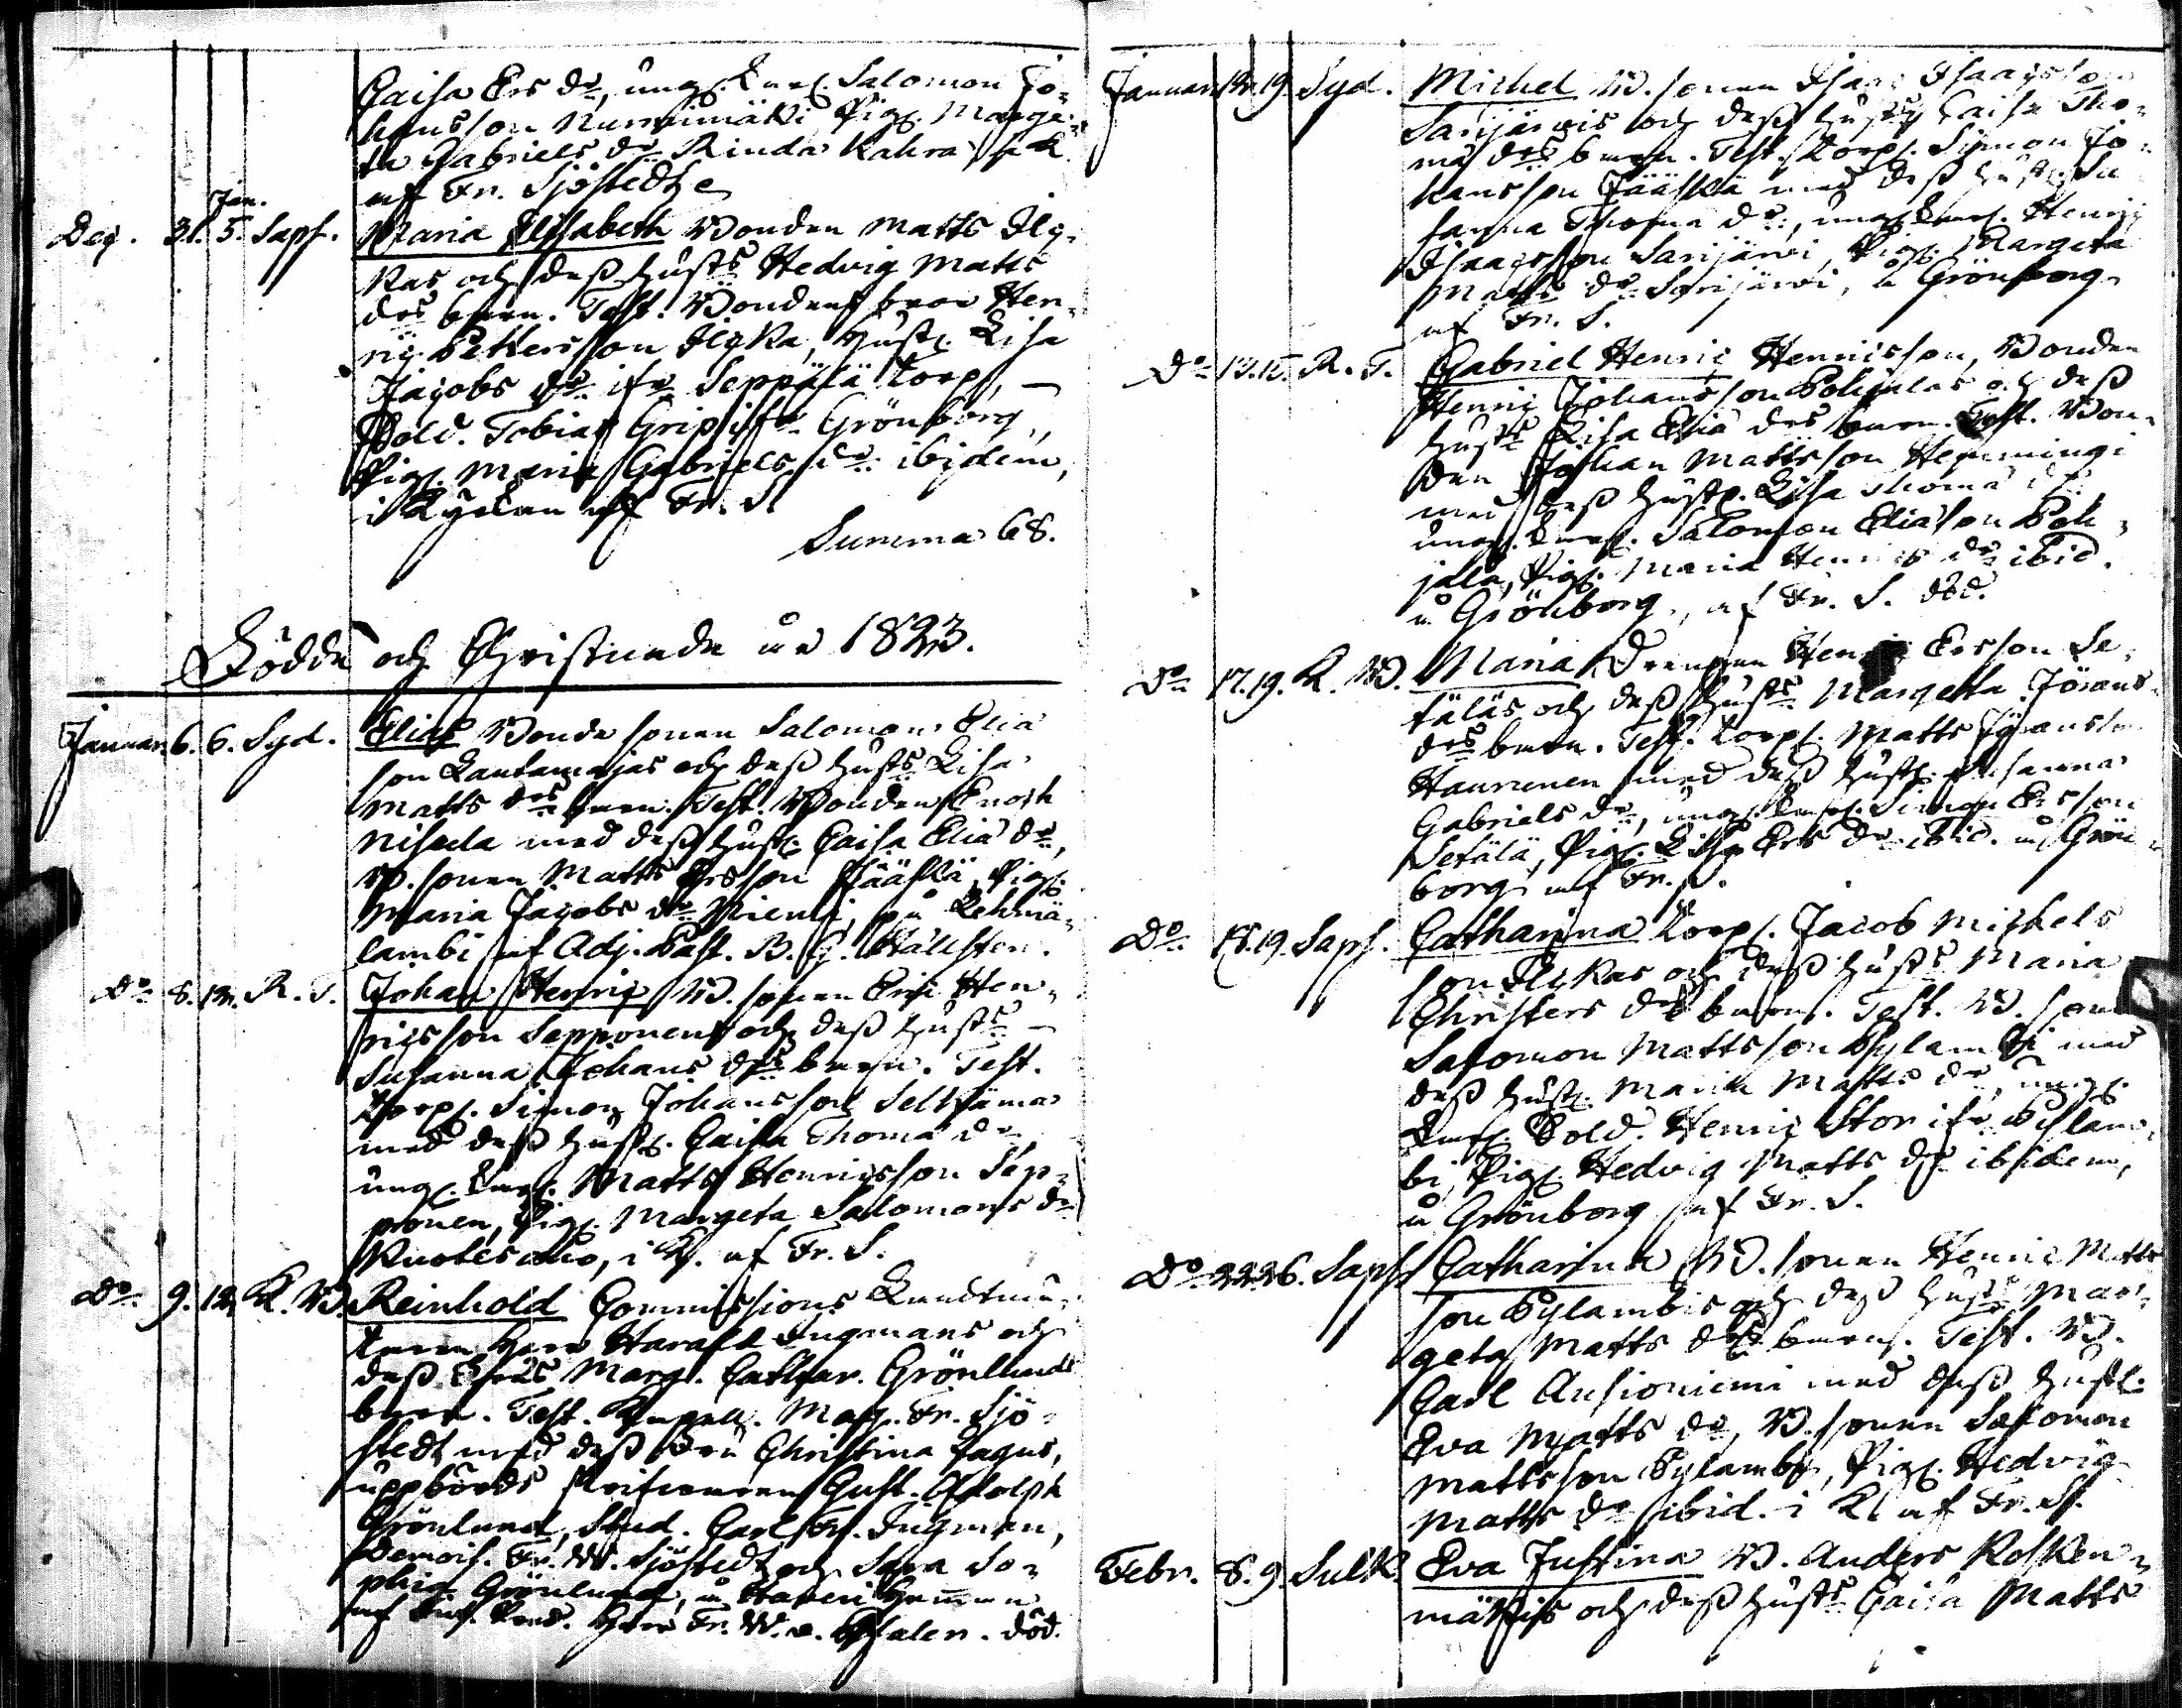 Caisa Ers dr, ung. Karl. Salomon Jo-
hansson Nurmimäki Pig. Marge-
ta Gabriels dr Rinda Kahra
af Fr. Sjöstedt
Jan.
Dec. 31. 5. Saps. Maria Elisabeth Bonden Matts Ilc-
kas och dess hustrs Hedvig Matts
drs barn. Test. Bondens bror Hen-
ric Pettersson Ilcka, hustr. Lisa
Jacobs dr ifr. Seppälä torp,
Sold. Tobias Grip ifr. Grönborg,
Pig. Maria Gabriels dr ibidem,
i Kyrkan af Fr. S.
Summa 68.
Födde och Christnade år 1823.
Januari 6. 6. Syd. Elias Bonde sonen Salomon Elia
son Kautamajas och dess hustrs Lisa
Matts drs barn. Test. Bonden Enoch
Nisula med dess hustr. Caisa Elia dr,
B. sonen Matts Ersson Jääskä, Pig.
Maria Jacobs dr Niemi, på Lehmä-
lambi af Adj. Past. B. G. Hällsten.
Do 8. 12. R. T. Johan Henric B. sonen Eric Hen-
ricsson Sepponens och dess hustrs
Susanna Johans drs barn. Test.
Torp. Simon Johansson
med dess hustr. Caisa Thoma dr,
ung. Karl. Matts Henricsson Sep-
ponen, Pig. Margeta Salomons dr
i K. af Fr. S.
Do 9. 12. K. B. Reinhold Commissions Landtmä-
taren Herr Harald Ingmans och
dess Frus Marg. Cathar. Grönlunds
barn. Test. Kapell. Mag. Fr. Sjö-
stedt med dess Fru Christina Fagus,
uppbörds skrifvaren Gust. Adolph
Grönlund, Stud. Carl Fr. Ingman,
Demois. Fr. W. Sjöstedt och Sara So-
phia Grönlund, å
af Herr Fr. W. död.
Januari 12. 19. Syd. Michel B. sonen Isac Isacsson
Sarijärvis och dess hustrs Caisa Tho-
mæ drs barn. Test. Torp. Simon Jo-
hansson Jääskä med dess hustr. Su
sanna Thomæ dr, ung. Karl. Henric
Isacsson Sarijärvi, Pig. Margeta
Matts dr Sarijärvi, å Grönborg
af Fr. S.
Do 13. 15. R. T. Gabriel Henric Henricsson, Bonden
Henric Johansson Pohjalas och dess
hustrs Lisa Elia drs barn. Test. Bon-
den Johan Mattsson Hemmingi
med dess hustr. Lisa Thoma dr
ung. Karl. Salomon Eliason Poh-
jala, Pig. Maria Henrics dr ibid.
å Grönborg, af Fr. S. död.
Do 17. 19. K. B. Maria Drengen Henric Ersson Se-
täläs och dess hustrs Margeta Jörans
drs barn. Test. Torp. Matts Jöransson
Haurunen med dess hustr. Susanna
Gabriels dr, ung. Karl. Simon Ersson
Setälä, Pig. Lisa Ers dr ibid. å Grön-
borg af Fr. S.
Do 18. 19. Saps. Catharina Torp. Jacob Michels
son Ilckas och dess hustrs Maria
Christers drs barn. Test. B. sonen
Salomon Mattsson Pylambi med
dess hustr. Maria Matts dr, ung.
Karl. Sold. Henric Stor ifr. Pylam-
bi, Pig. Hedvig Matts dr ibidem,
å Grönborg af Fr. S.
Do 22. 26. Saps. Catharina B. sonen Henric Matts
son Pylambis och dess hustrs Mar-
geta Matts drs barn. Test. B.
Carl Ansioniemi med dess hustr.
Eva Matts dr, B. sonen Salomon
Mattsson Pylambi, Pig. Hedvig
Matts dr ibid. i K. af Fr. S.
Febr. 8. 9. Sulk. Eva Justina B. Anders Kosken-
mäkis och dess hustrs Caisa Matts